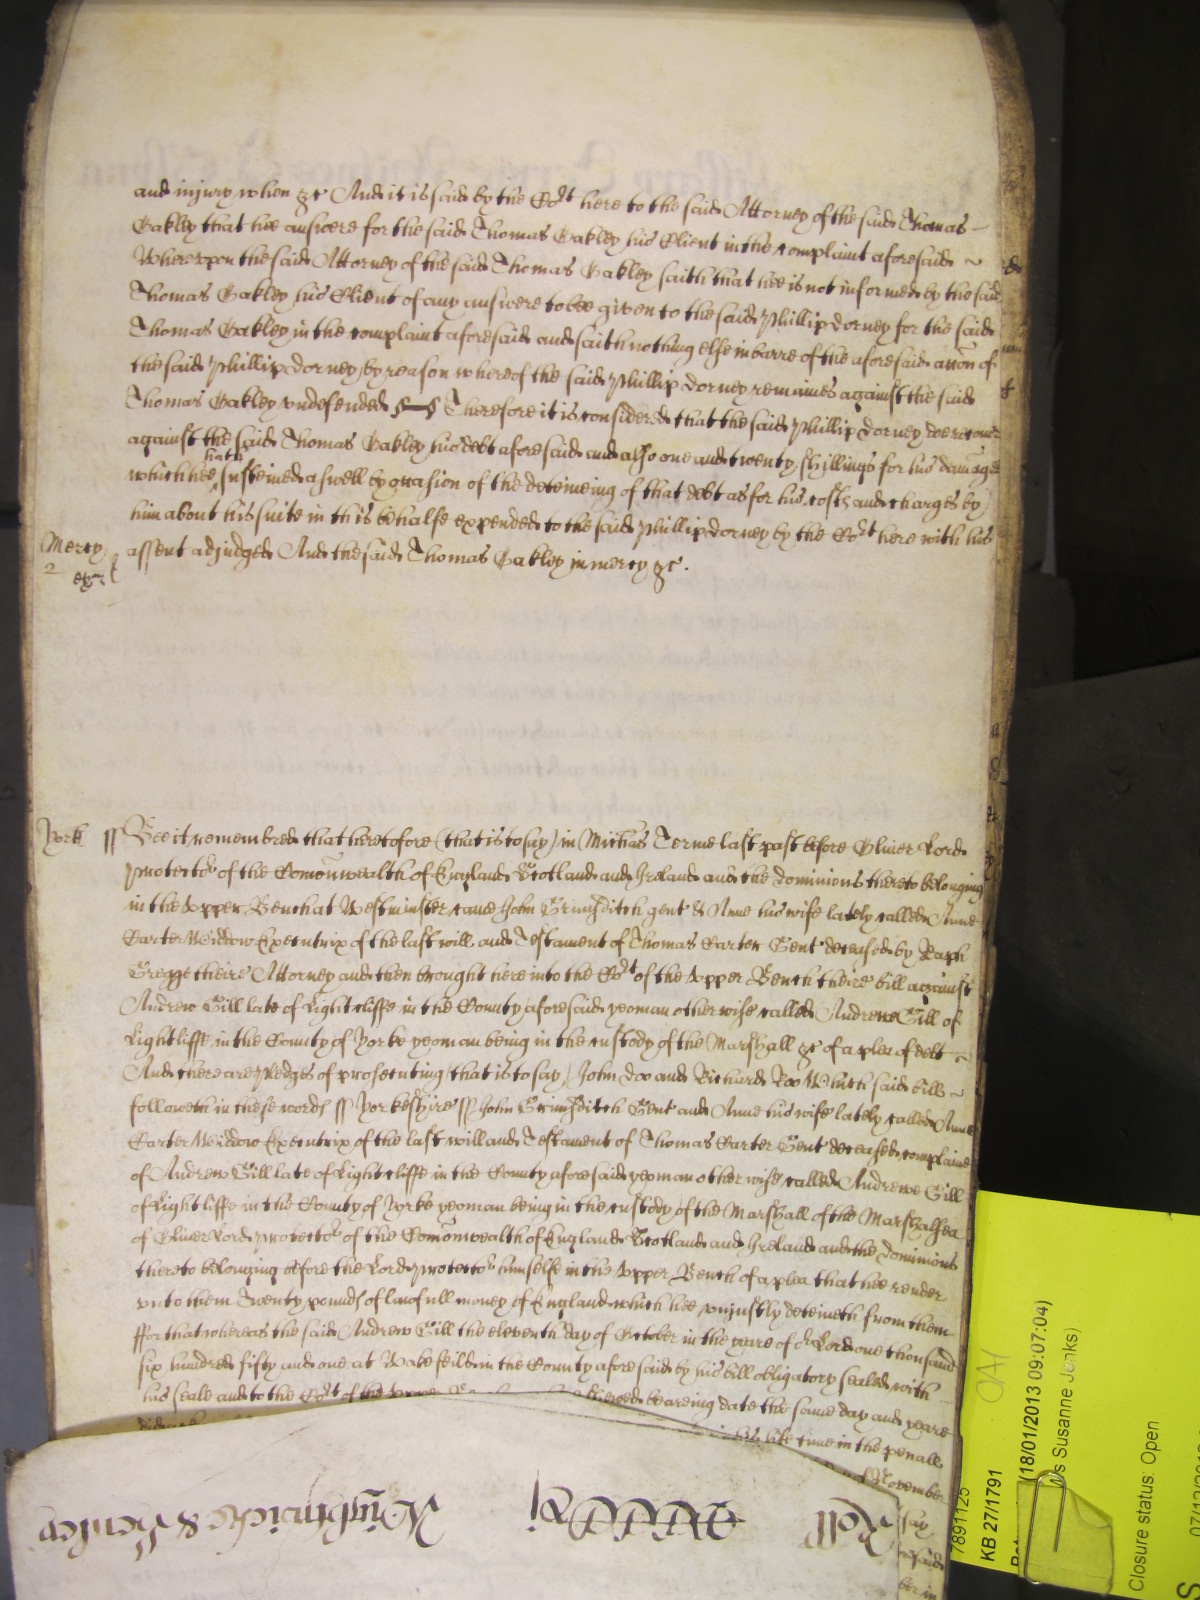 and injury when &c And it is said by the Cort here to the said Attorney of the said Thomas
Oakley that hee answere for the said Thomas Oakley his Client in the complaint aforesaid
Whereupon the said Attorney of the said Thomas Oakley saith that hee is not informed by the said
Thomas Oakley his Client of any answere to bee given to the said Phillip Dorney for the said
Thomas Oakley in the complaint aforesaid and saith nothing else in barre of the aforesaid accon of
the said Phillip Dorney by reason whereof the said Phillip Dorney remaines against the said
Thomas Oakley undefended Therefore it is considered that the said Phillip Dorney doe recover
against the said Thomas Oakley his debt aforesaid and also one and twenty shillings for his damages
which hee hath susteined aswell by occasion of the deteineing of that debt as for his costs and charges by
him about his suite in this behalfe expended to the said Phillip Dorney by the Cort here with his
Mercy assent adjudged And the said Thomas Oakley in mercy &c.
2 exr
York ss Bee it remembred that heretofore (that is to say) in Michas Terme last past before Oliver Lord
Protector of the Comonwealth of England Scotland and Ireland and the dominions thereto belonging
in the Upper Bench at Westminster came John Grimsditch gent & Anne his wife lately called Anne
Carter Widdow Executrix of the last will and Testament of Thomas Carter Gent deceased by Raph
Gregge theire Attorney and then brought here into the Cort of the Upper Bench theire bill against
Andrew Gill late of Lightcliffe in the County aforesaid yeoman otherwise called Andrewe Gill of
Lightliffe in the County of Yorke yeoman being in the custody of the Marshall &c of a plea of debt
And there are pledges of prosecuting (that is to say) John Doo and Richard Roo Which said bill
followeth in these words ss Yorkeshire ss John Grimsditch Gent and Anne his wife lately called Anne
Carter Widdow Executrix of the last will and Testament of Thomas Carter Gent deceased complaine
of Andrew Gill late of Lightcliffe in the County aforesaid yeoman otherwise called Andrewe Gill
of Lightliffe in the County of Yorke yeoman being in the custody of the Marshall of the Marshalsea
of Oliver Lord Protector of the Comonwealth of England Scotland and Ireland and the dominions
thereto belonging before the Lord Protector himselfe in the Upper Bench of a plea that hee render
unto them Twenty pounds of lawfull money of England which hee unjustly deteineth from them
ffor that whereas the said Andrew Gill the eleventh day of October in the yeare of or Lord one thousand
six hundred fifty and one at Wakefeild in the County aforesaid by his bill obligatory sealed with
his seale and to the Cort of the bearing date the same day and yeare
like time in the penall
November
say
Roll
Wightwicke &
7891125
KB 27/1791
(18/01/2013 09:07:04)
s Susanne Jenks)
Closure status: Open